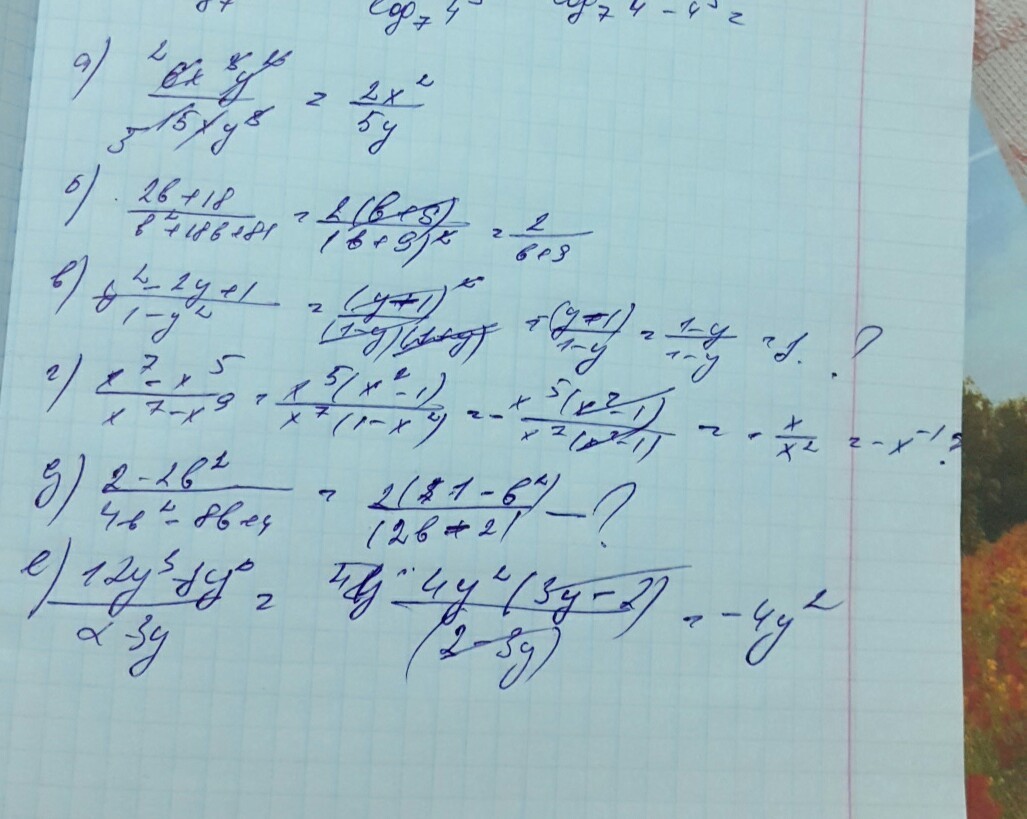 log₇ 4 log₇ 4 - 4 =
а) 6x³y / 15xy⁸ = 2x² / 5y
б) 2b+18 / b²+18b+81 = 2(b+9) / (b+9)² = 2 / b+9
в) y²-2y+1 / 1-y² = (y-1)² / (1-y)(1+y) = -(y-1) / 1-y = 1-y / 1-y = 1. ?
г) x⁷-x⁵ / x⁷-x⁹ = x⁵(x²-1) / x⁷(1-x²) = - x⁵(x²-1) / x⁷(x²-1) = - x / x² = -x⁻¹ ?
д) 2-2b² / 4b²-8b+4 = 2(1-b²) / (2b-2) - ?
е) 12y³-8y² / 2-3y = 4y²(3y-2) / (2-3y) = -4y²